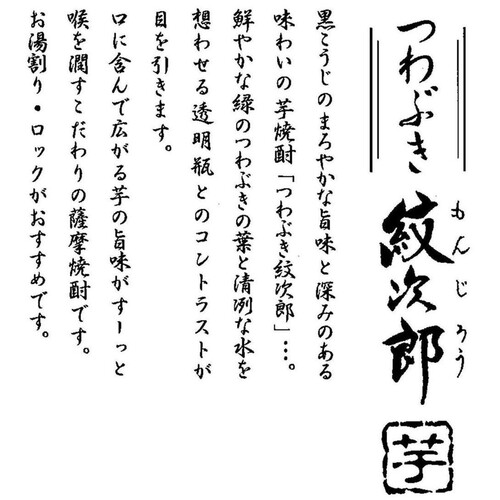 つわぶき
紋次郎
もんじろう
芋
黒こうじのまろやかな旨味と深みのある
味わいの芋焼酎「つわぶき紋次郎」…。
鮮やかな緑のつわぶきの葉と清冽な水を
想わせる透明瓶とのコントラストが
目を引きます。
口に含んで広がる芋の旨味がすーっと
喉を潤すこだわりの薩摩焼酎です。
お湯割り・ロックがおすすめです。